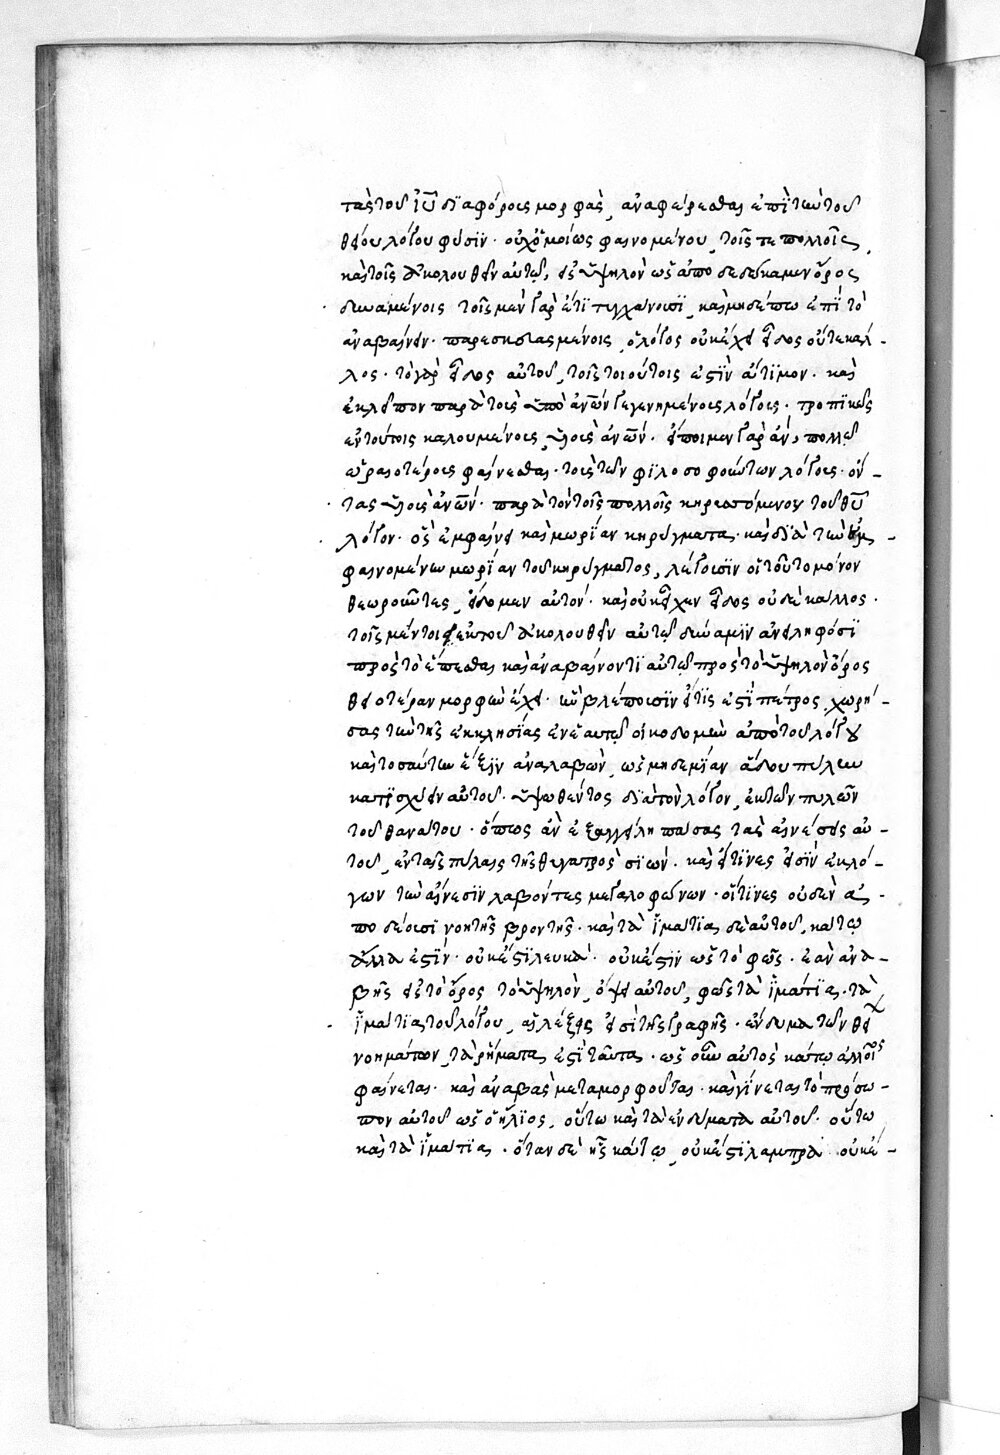 τὰς τοῦ ἰῦ διαφόρους μορφὰς, ἀναφέρεσθαι ἐπὶ τὴν τοῦ
θείου λόγου φύσιν· οὐχ ὁμοίως φαινομένου, τοῖς τε πολλοῖς,
καὶ τοῖς ἀκολουθεῖν αὐτῷ, εἰς ὑψηλὸν ὡς ἀποδεδώκαμεν ὄρος
δυναμένοις τοῖς μὲν γὰρ ἔτι τυγχάνουσι, καὶ μηδέπω ἐπὶ τὸ
ἀναβαίνειν· παρεσκευασμένοις, ὁ λόγος οὐκ ἔχει εἶδος οὔτε κάλ-
λος· τὸ γὰρ εἶδος αὐτοῦ, τοῖς τοιούτοις ἐστὶν ἄτιμον· καὶ
ἐκλεῖπον παρὰ τοὺς ὑπὸ ἀνῶν γεγενημένους λόγους· τροπικῶς
ἐν τούτοις καλουμένους, υἱοὺς ἀνῶν· εἴποιμεν γὰρ ἂν, πολλῷ
ὡραιοτέρους φαίνεσθαι· τοὺς τῶν φιλοσοφούντων λόγους· ὄν-
τας υἱοὺς ἀνῶν· παρὰ τὸν τοῖς πολλοῖς κηρυσσόμενον τοῦ θῦ
λόγον· ὃς ἐμφαίνει καὶ μωρίαν κηρύγματος· καὶ διὰ τὴν
φαινομένην μωρίαν τοῦ κηρύγματος, λέγουσιν οἱ τοῦτο μόνον
θεωροῦντες, εἴδομεν αὐτόν· καὶ οὐκ εἶχεν εἶδος οὐδὲ κάλλος·
τοῖς μέντοι ἐκ τοῦ ἀκολουθεῖν αὐτῷ δύναμιν ἀνειληφόσι
πρὸς τὸ ἕπεσθαι καὶ ἀναβαίνοντι αὐτῷ πρὸς τὸ ὑψηλὸν ὄρος
θειοτέραν μορφὴν ἔχει· ἣν βλέπουσιν εἴ τις ἐστὶ πέτρος, χωρή-
σας τὴν τῆς ἐκκλησίας ἐν ἑαυτῷ οἰκοδομὴν ἀπὸ τοῦ λόγου
καὶ τοσαύτην ἕξιν ἀναλαβὼν, ὡς μηδεμίαν ᾅδου πύλην
κατισχύειν αὐτοῦ· ὑψωθέντος διὰ τὸν λόγον, ἐκ τῶν πυλῶν
τοῦ θανάτου· ὅπως ἂν ἐξαγγείλῃ πάσας τὰς αἰνέσεις αὐ-
τοῦ, ἐν ταῖς πύλαις τῆς θυγατρὸς σιών· καὶ εἴ τινες εἰσὶν ἐκ λό-
γων τὴν αἴνεσιν λαβόντες μεγαλοφώνων· οἵτινες οὐδὲν ἀ-
ποδέουσι νοητῆς βροντῆς· καὶ τὰ ἱμάτια δὲ αὐτοῦ, κάτω
ἄλλα ἐστὶν· οὐκ ἔστι λευκὰ· οὐκ ἔστιν ὡς τὸ φῶς· ἐὰν ἀνα-
βῇς εἰς τὸ ὄρος τὸ ὑψηλὸν, ὄψει αὐτοῦ, φῶς τὰ ἱμάτια· τὰ
ἱμάτια τοῦ λόγου, αἱ λέξεις εἰσὶ τῆς γραφῆς· ἔνδυμα τῶν θείων
νοημάτων, τὰ ῥήματα ἐστὶ ταῦτα· ὡς οὖν αὐτὸς κάτω ἀλλοῖος
φαίνεται· καὶ ἀναβὰς μεταμορφοῦται· καὶ γίνεται τὸ πρόσω-
πον αὐτοῦ ὡς ὁ ἥλιος, οὕτω καὶ τὰ ἐνδύματα αὐτοῦ· οὕτω
καὶ τὰ ἱμάτια· ὅταν δὲ ᾖς κάτω, οὐκ ἔστι λαμπρὰ· οὐκ ἔ-